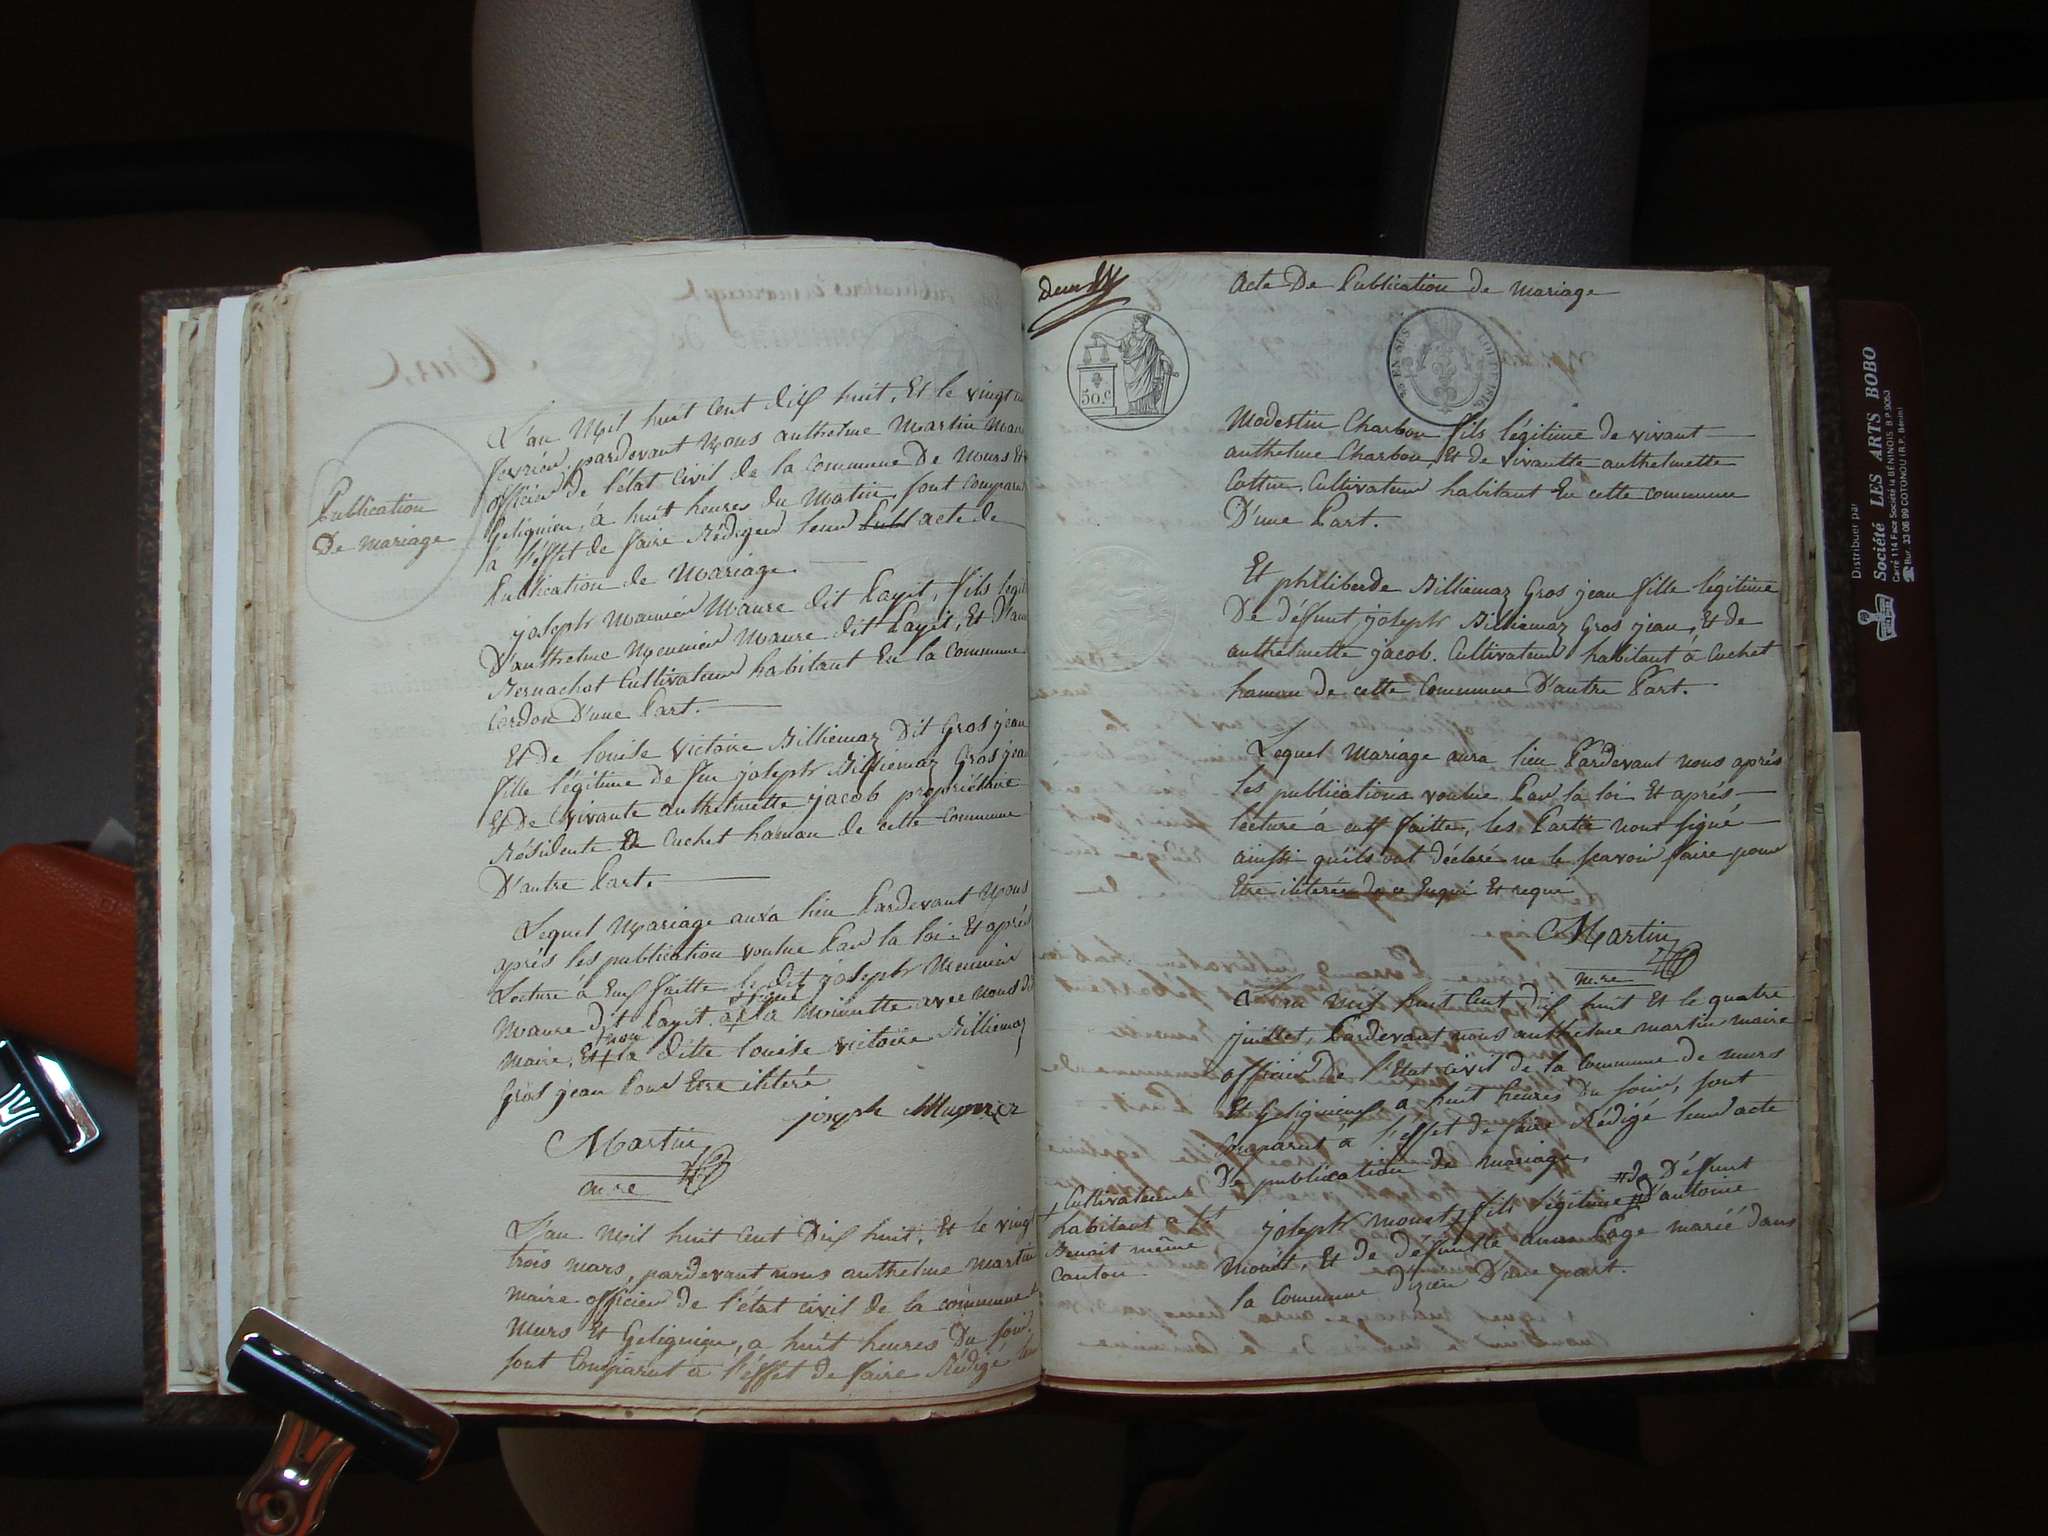 Publication
De mariage
L'an Mil huit Cent dix huit, Et le vingt
fevrier, pardevant Nous anthelme Martin Maire
officier de l'état Civil de la Commune De Murs Et
Gelignieu, à huit heures du Matin, sont Comparu
à l'effet de faire Rédiger leur acte de
Publication de Mariage.
joseph Maure dit Payit, fils legit
D'anthelme Meunier Maure dit Payit, Et D'anne
Bernachot Cultivateur habitant En la Commune
Cordon D'une Part.
Et de Louise Victoire Billiemaz Dit Gros jean
fille légitime de feu joseph Billiemaz Gros jean
Et De vivante anthelmette jacob propriétaire
Résidente Cuchet hamau de cette Commune
D'autre Part.
Lequel Mariage aura lieu Pardevant Nous
après les publication voulue Par la loi. Et après
Lecture à Eux faitte le dit joseph Meunier
Maure dit Payit a signé la Minutte avec nous dt
maire, Et non la ditte Louise victoire Billiemaz
Gros jean Pour Etre iliteré
joseph Mugnier
Martin
mre
L'an Mil huit Cent Dix huit, Et le vingt
trois mars, pardevant nous anthelme Martin
maire officier de l'état civil de la commune de
Murs Et Gelignieu, a huit heures Du soir,
sont Comparut à l'éffet de faire Rédigé leur
Acte De Publication de Mariage
50.c
EN SUS
Modestin Charbon fils légitime de vivant
anthelme Charbon, Et de vivantte anthelmette
Cottin, Cultivateur habitant En cette commune
D'une Part.
Et philiberde Billiemaz Gros jean fille légitime
De déffunt joseph Billiemaz Gros jean, Et de
anthelmette jacob. Cultivateur habitant à Cuchet
hamau de cette Commune D'autre Part.
Lequel Mariage aura lieu Pardevant nous après
Les publications voulue Par la loi Et après
lecture à eux faitte, les Partie nont signé
ainssi quils ont déclaré ne le scavoir faire pour
Etre iliterée de ce Enquis Et requi
Martin
mre
L'an Mil huit Cent dix huit Et le quatre
juillet, Pardevant nous anthelme martin maire
officier De l'Etat civil de la Commune de murs
Et Gelignieux a huit heures Du soir, sont
Comparut a l'effet de faire Rédigé leur acte
De publication de mariage,
+ Cultivateur
habitant a St
Benoit même
Canton
joseph monet, fils légitime # D'antoine
# de Déffunt
Monet, Et de defuntte anne Page marié dans
la Commune Dizieu D'une part.
Distribuer par
Société LES ARTS BOBO
Carré 114 Face Société la BÉNINOIS B.P 9053
Bur. 33 06 99 COTONOU (R.P. Bénin)